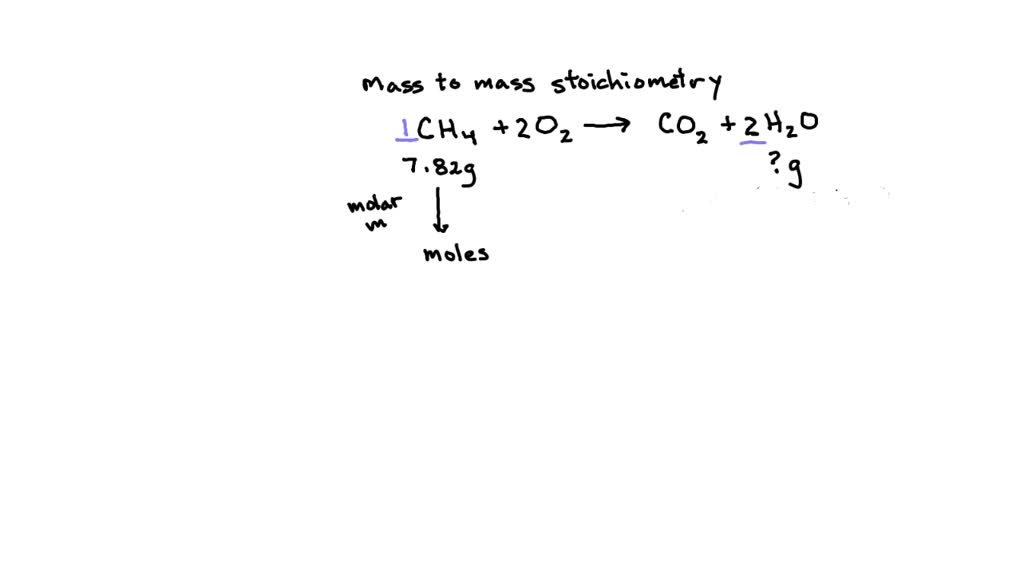 Mass to mass stoichiometry
1CH₄ + 2O₂ → CO₂ + 2H₂O
7.82g ? g
molar
m
moles